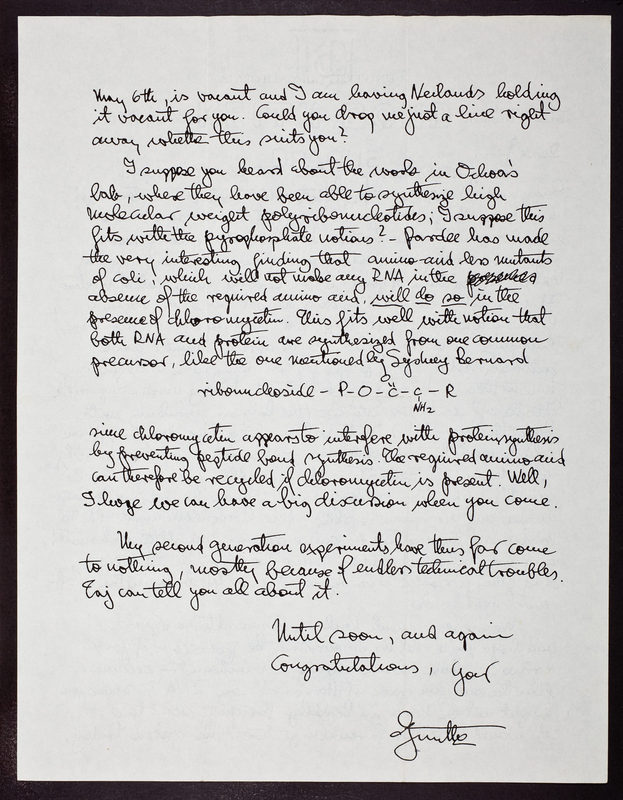 May 6th, is vacant and I am having Neilands holding
it vacant for you. Could you drop me just a line right
away whether this suits you?
I suppose you heard about the work in Ochoa's
lab, where they have been able to synthesize high
molecular weight polyribonucleotides; I suppose this
fits with the pyrophosphate notions? - Pardee has made
the very interesting finding that amino-acid-less mutants
of coli, which will not make any RNA in the
absence of the required amino acid, will do so in the
presence of chloromycetin. This fits well with notion that
both RNA and protein are synthesized from one common
precursor, like the one mentioned by Sydney Bernard
O
ribonucleoside - P - O - C - C - R
NH2
since chloromycetin appears to interfere with protein synthesis
by preventing peptide bond synthesis. The required amino acid
can therefore be recycled if chloromycetin is present. Well,
I hope we can have a big discussion when you come.
My second generation experiments have thus far come
to nothing, mostly because of endless technical troubles.
Taj can tell you all about it.
Until soon, and again
Congratulations, your
Gunther